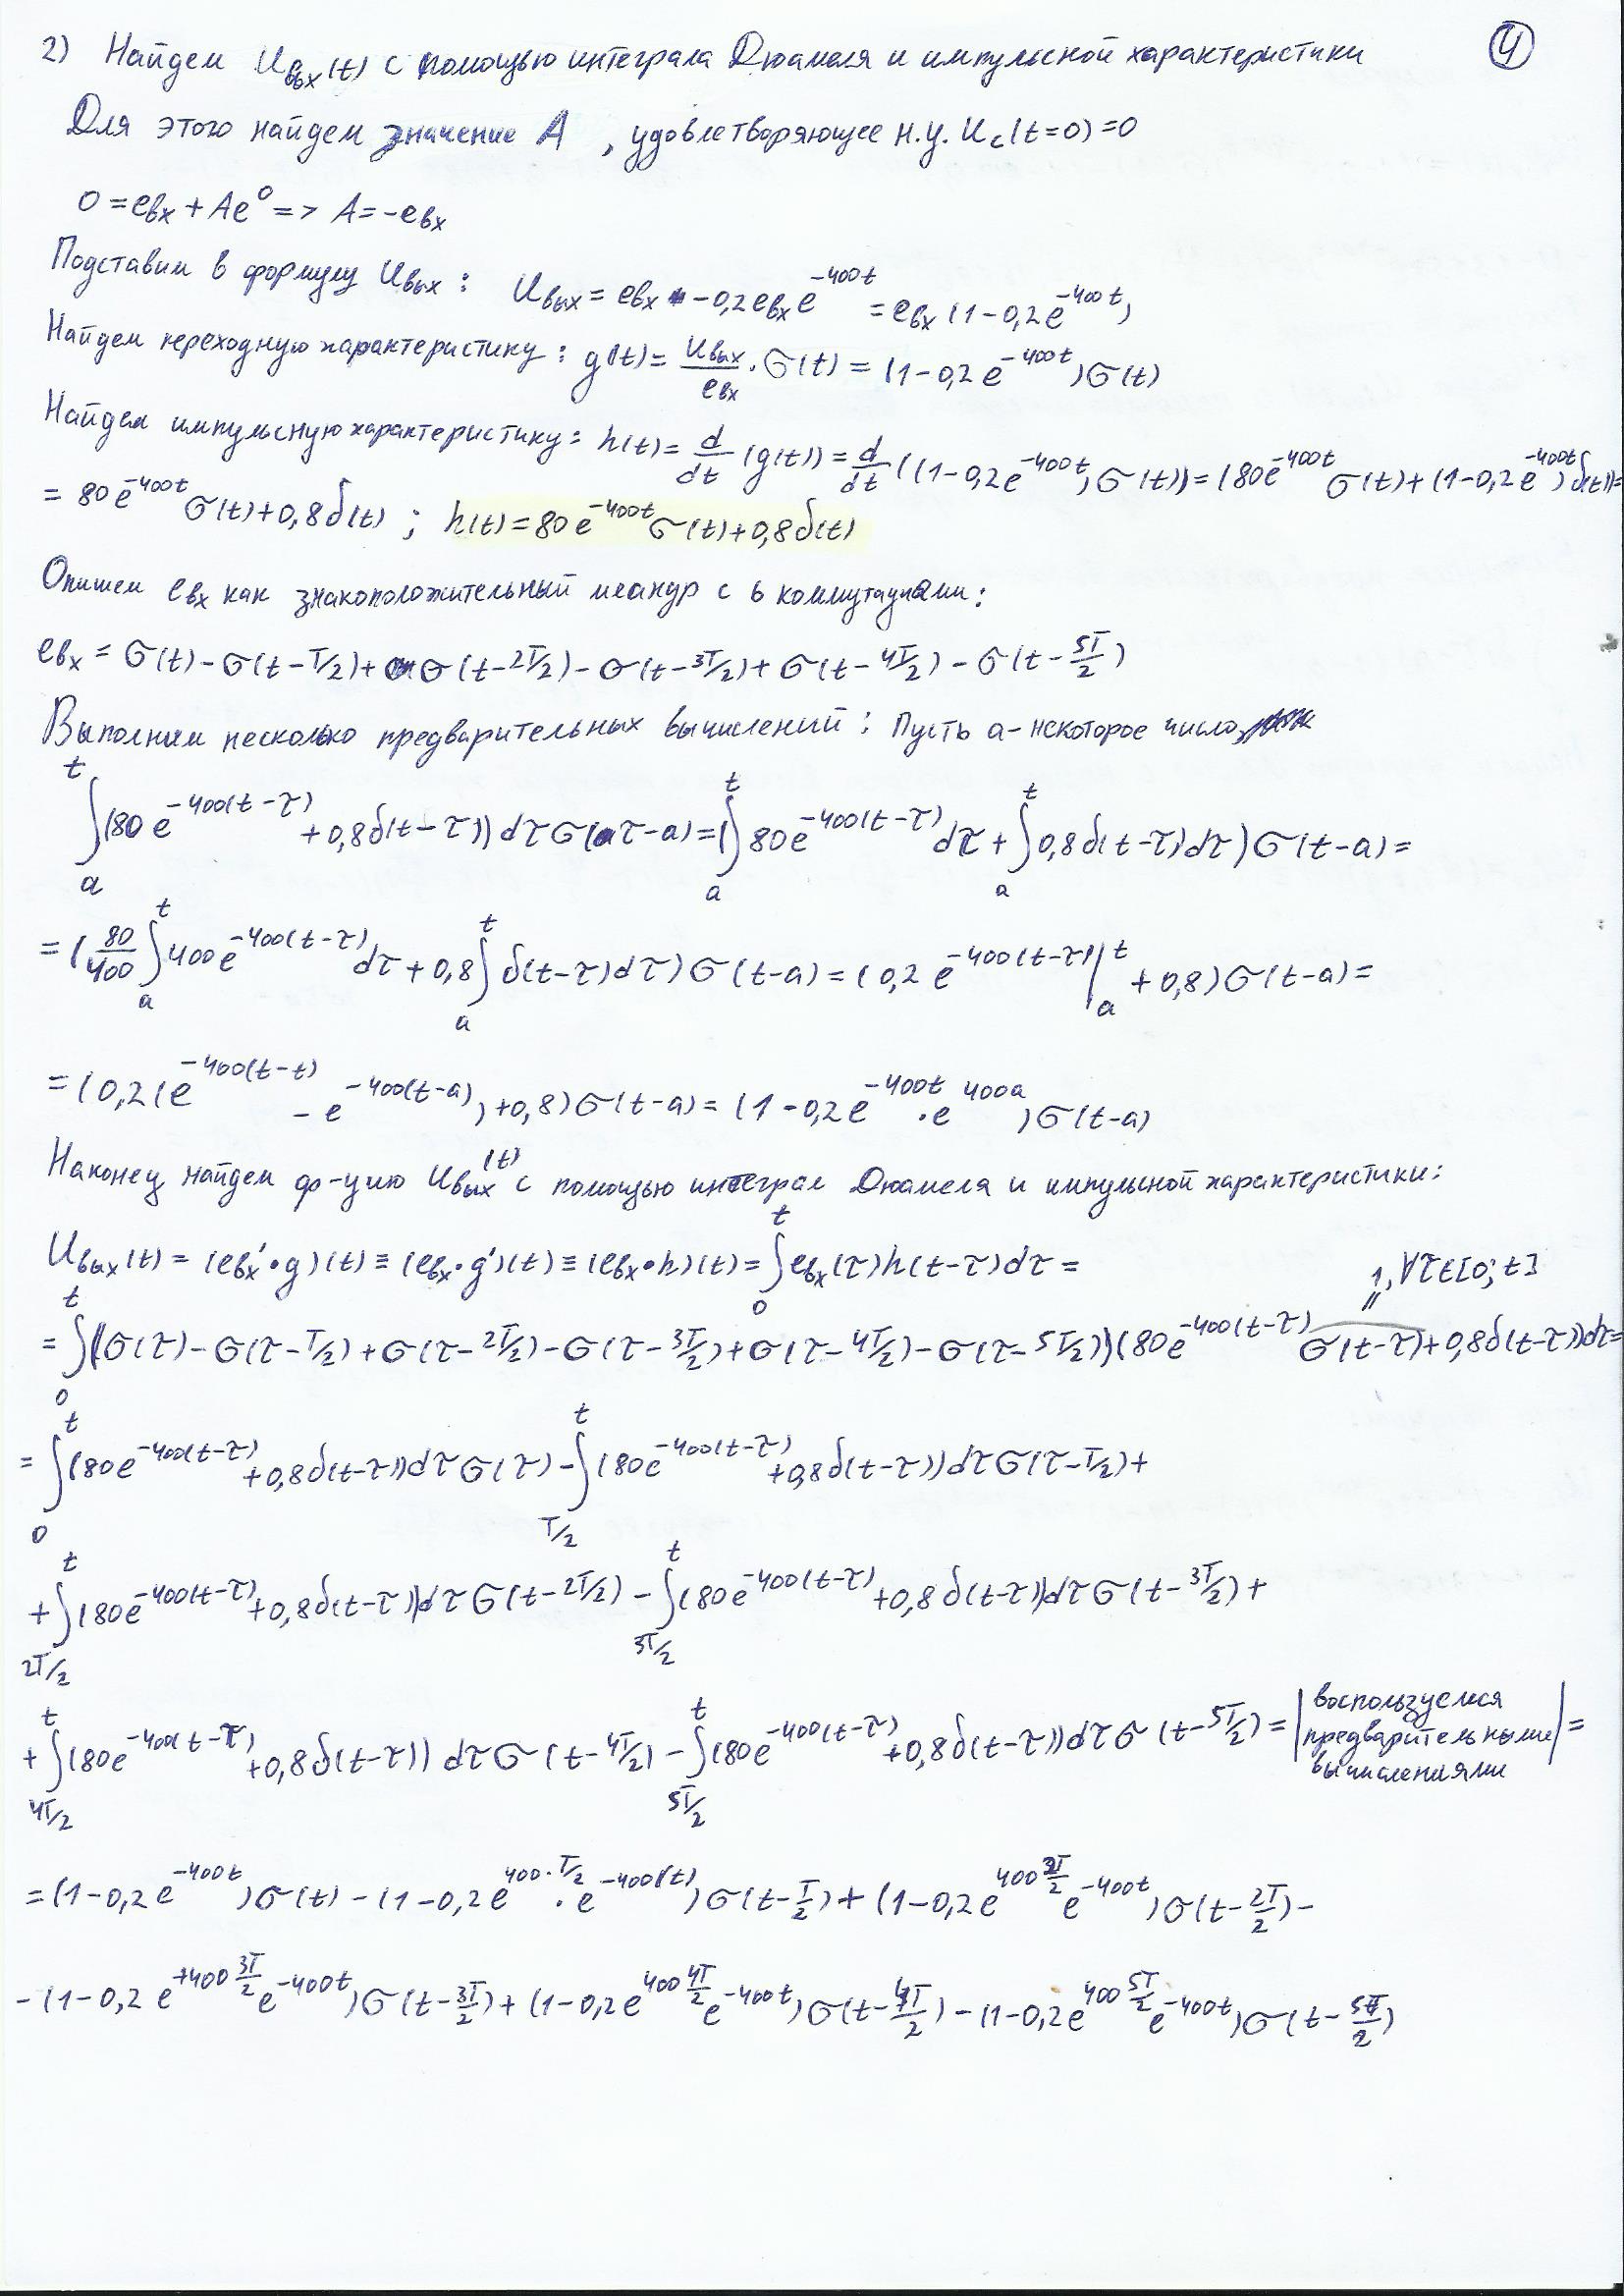 2) Найдем Uвых(t) с помощью интеграла Дюамеля и импульсной характеристики (4)
Для этого найдем значение A , удовлетворяющее н.у. Uc(t=0)=0
0 = eвх + Ae^0 => A = -eвх
Подставим в формулу Uвых : Uвых = eвх - 0,2eвх e^{-400t} = eвх (1-0,2e^{-400t})
Найдем переходную характеристику : g(t) = Uвых/eвх · σ(t) = (1-0,2e^{-400t})σ(t)
Найдем импульсную характеристику: h(t) = d/dt (g(t)) = d/dt ((1-0,2e^{-400t})σ(t)) = (80e^{-400t}σ(t) + (1-0,2e^{-400t})δ(t)) =
= 80e^{-400t}σ(t)+0,8δ(t) ; h(t) = 80e^{-400t}σ(t)+0,8δ(t)
Опишем eвх как знакоположительный меандр с 6 коммутациями:
eвх = σ(t) - σ(t-T/2) + σ(t-2T/2) - σ(t-3T/2) + σ(t-4T/2) - σ(t-5T/2)
Выполним несколько предварительных вычислений : Пусть a - некоторое число
∫_a^t (80e^{-400(t-τ)} + 0,8δ(t-τ)) dτ σ(τ-a) = (∫_a^t 80e^{-400(t-τ)} dτ + ∫_a^t 0,8δ(t-τ)dτ)σ(t-a) =
= (80/400 ∫_a^t 400e^{-400(t-τ)} dτ + 0,8 ∫_a^t δ(t-τ)dτ)σ(t-a) = (0,2 e^{-400(t-τ)}|_a^t + 0,8)σ(t-a) =
= (0,2(e^{-400(t-t)} - e^{-400(t-a)}) + 0,8)σ(t-a) = (1-0,2e^{-400t} · e^{400a})σ(t-a)
Наконец найдем ф-цию Uвых(t) с помощью интеграл Дюамеля и импульсной характеристики:
Uвых(t) = (eвх' • g)(t) ≡ (eвх • g')(t) ≡ (eвх • h)(t) = ∫_0^t eвх(τ)h(t-τ)dτ =
1, ∀τ∈[0; t]
= ∫_0^t (σ(τ) - σ(τ-T/2) + σ(τ-2T/2) - σ(τ-3T/2) + σ(τ-4T/2) - σ(τ-5T/2))(80e^{-400(t-τ)} σ(t-τ)+0,8δ(t-τ))dτ =
= ∫_0^t (80e^{-400(t-τ)} + 0,8δ(t-τ))dτ σ(τ) - ∫_{T/2}^t (80e^{-400(t-τ)} + 0,8δ(t-τ))dτσ(τ-T/2) +
+ ∫_{2T/2}^t (80e^{-400(t-τ)} + 0,8δ(t-τ))dτσ(t-2T/2) - ∫_{3T/2}^t (80e^{-400(t-τ)} + 0,8δ(t-τ))dτσ(t-3T/2) +
+ ∫_{4T/2}^t (80e^{-400(t-τ)} + 0,8δ(t-τ)) dτσ(t-4T/2) - ∫_{5T/2}^t (80e^{-400(t-τ)} + 0,8δ(t-τ))dτσ(t-5T/2) = | воспользуемся предварительными вычислениями | =
= (1-0,2e^{-400t})σ(t) - (1-0,2e^{400·T/2} · e^{-400(t)})σ(t-T/2) + (1-0,2e^{400 2T/2} e^{-400t})σ(t-2T/2) -
- (1-0,2e^{+400 3T/2} e^{-400t})σ(t-3T/2) + (1-0,2e^{400 4T/2} e^{-400t})σ(t-4T/2) - (1-0,2e^{400 5T/2} e^{-400t})σ(t-5T/2)